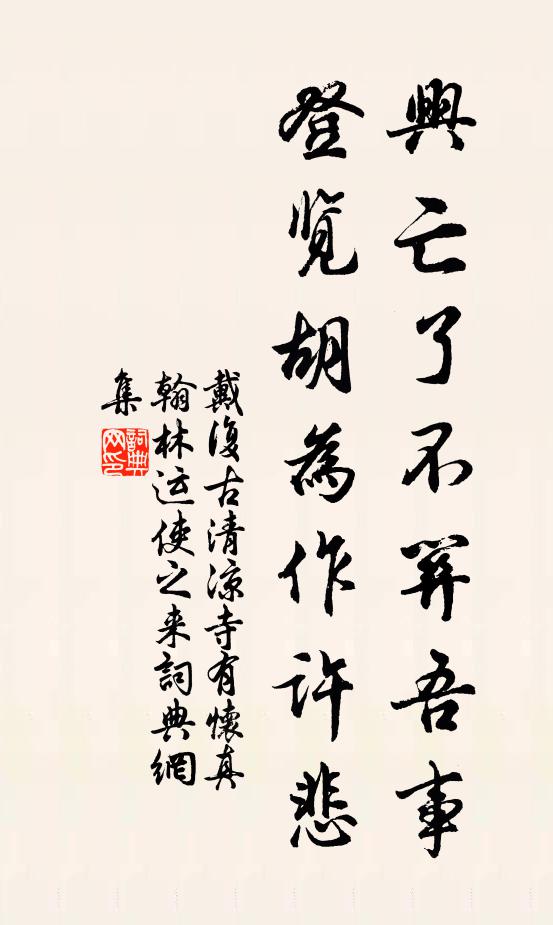 興亡了不關吾事
登览胡為作許悲
戴復古清涼寺有懷真
翰林运使之来詞典網
集
詞典
网印